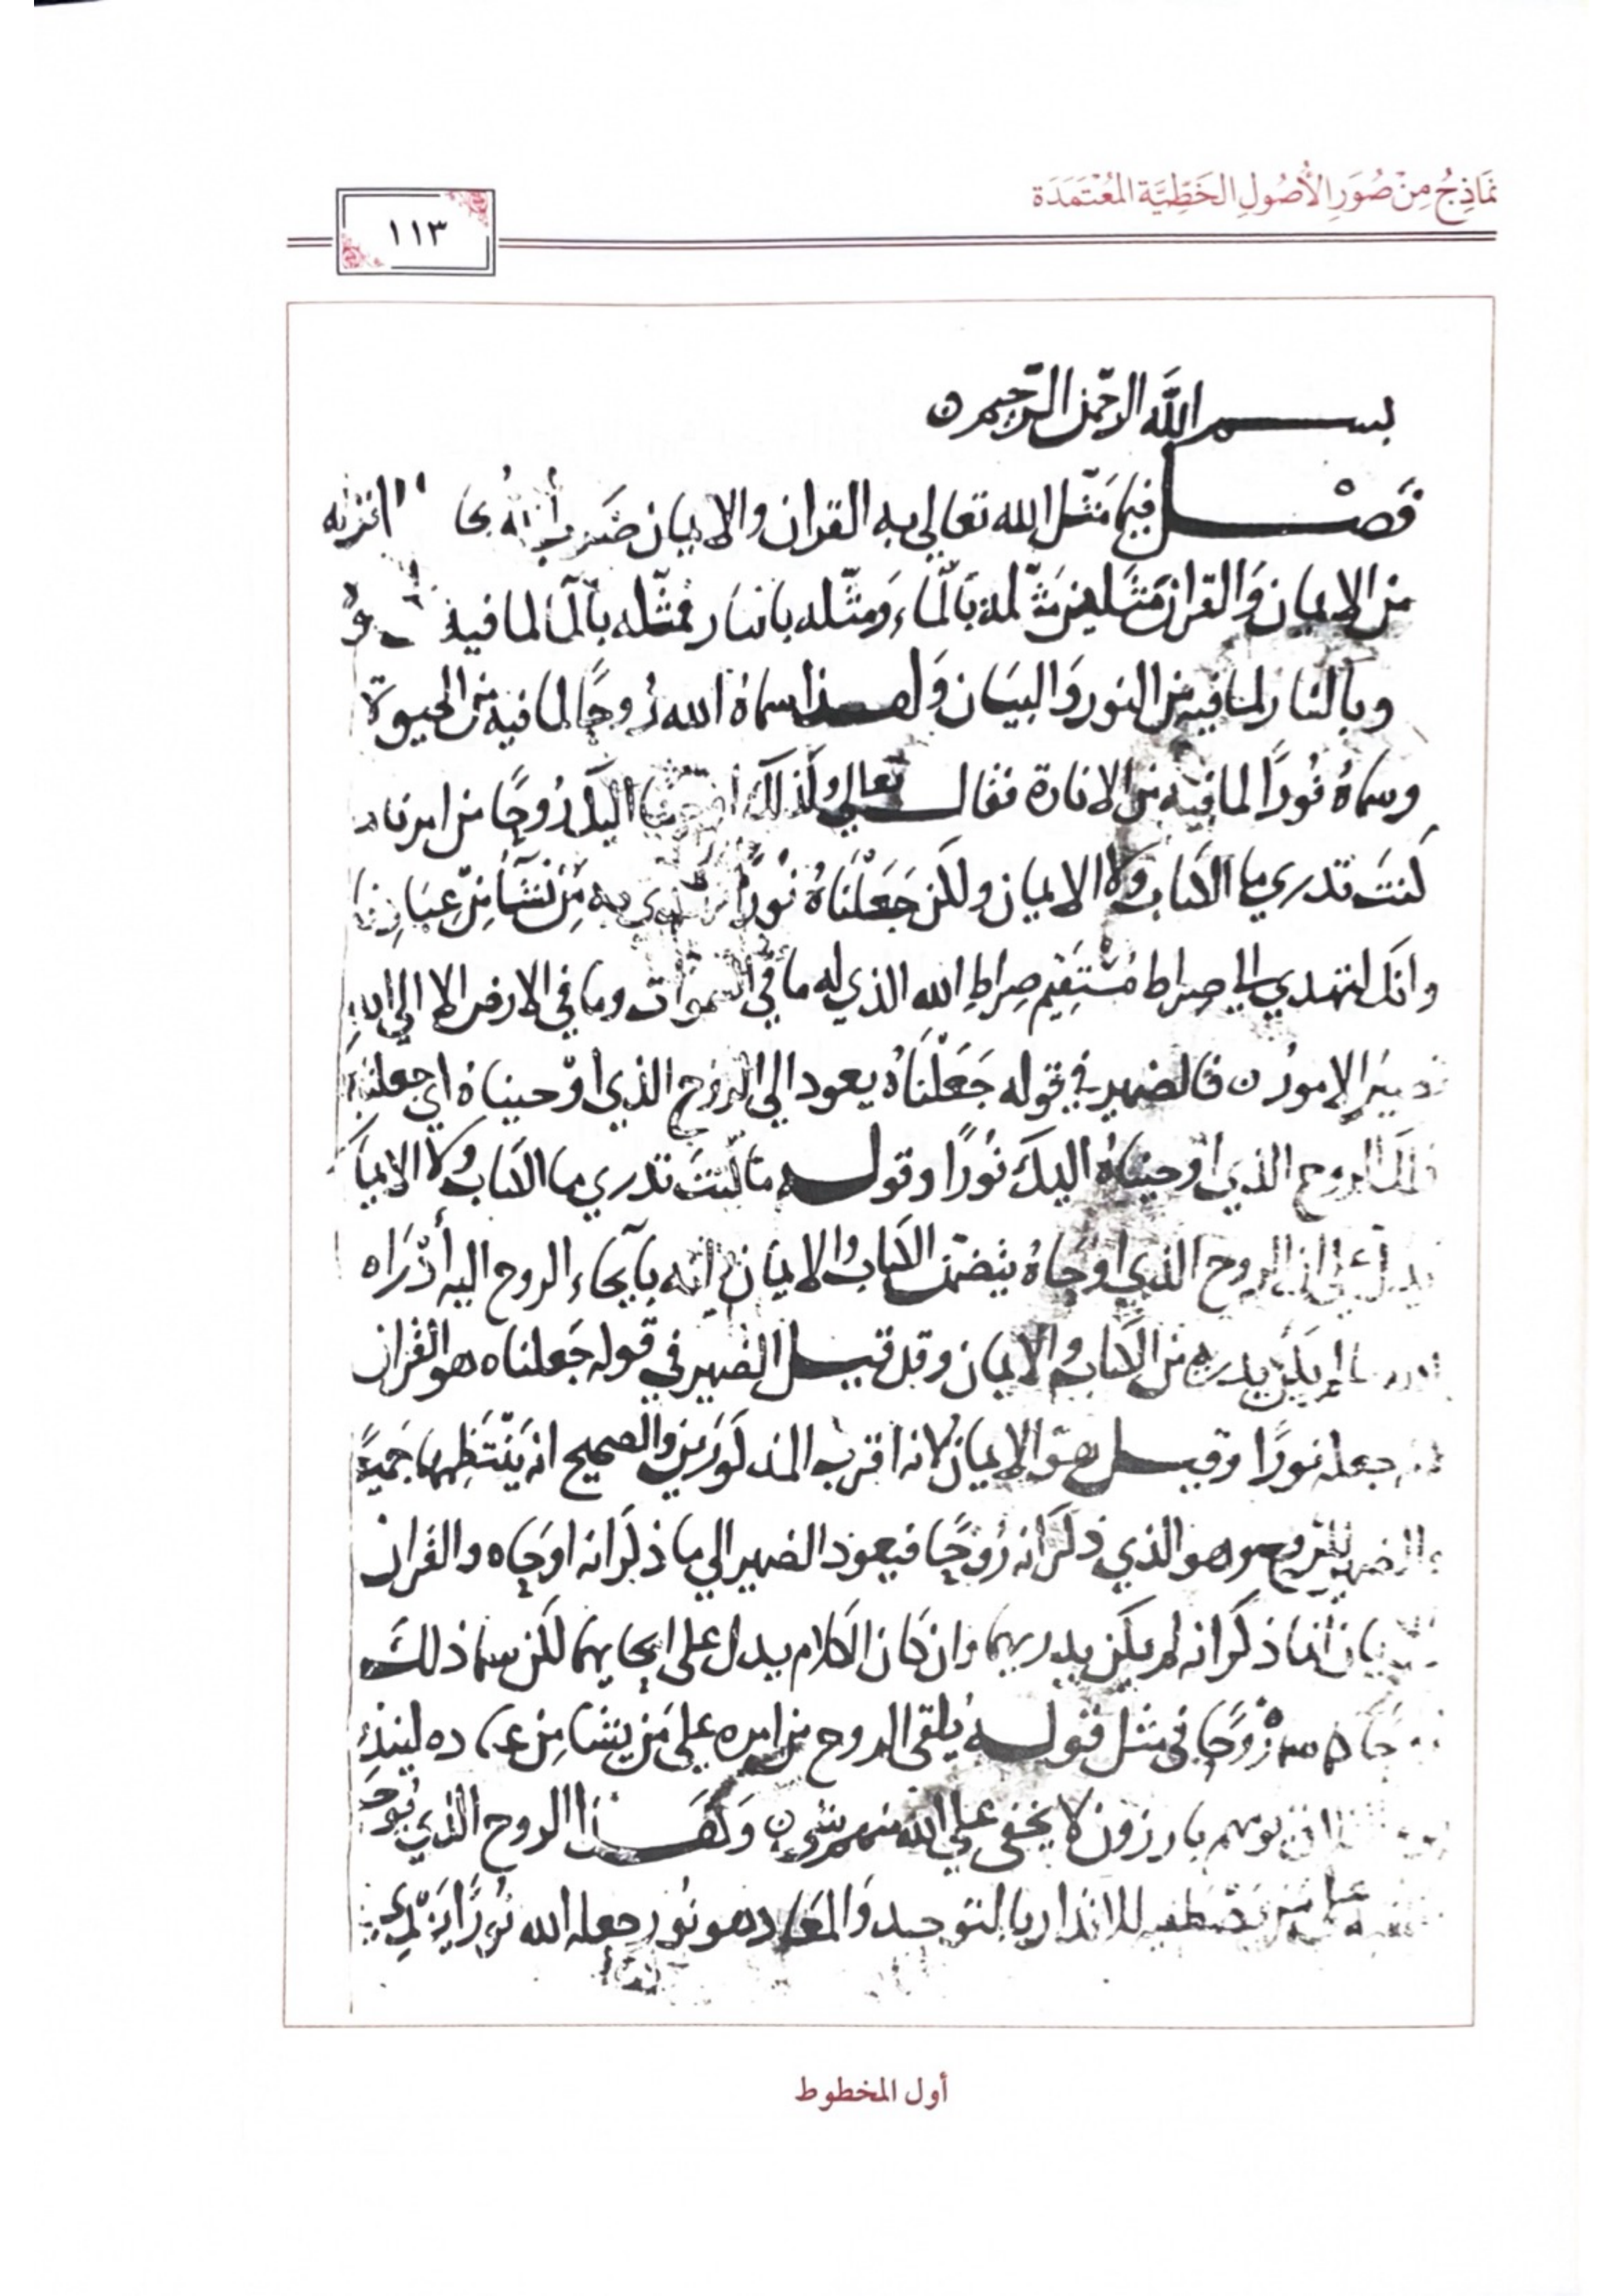 نَمَاذِجُ مِنْ صُوَرِ الأُصُولِ الخَطِّيَّة المُعْتَمَدَة
١١٣
بسم الله الرحمن الرحيم
فَصْل فيما مَثّل الله تعالى به القران والايمان ضَرب الله انزله
من الايمان وَالقران مَثَلين مثّله بالمَاء وَمثّله بالنار فمثّله بالمآ لما فيه
وبالنار لما فيه من النور وَالبيَان وَلهذا سماهُ الله رُوحًا لما فيه من الحيوة
وسماهُ نُورًا لما فيه من الانارة فقال تعالى وكذلك اوحينا اليك رُوحًا من امرنا
كنتَ تدري ما الكتاب ولا الايمان ولكن جَعَلْنَاهُ نُورًا نهدي به مَن نشآ مِن عبَادِنا
وانك لتهدي الى صراط مُسْتَقيم صِراطِ الله الذي له ما في السموات وما في الارض الا الى الله
تصيرُ الامورُ فالضمير في قوله جَعَلْنَاهُ يعود الى الروح الذي اوْحيناه اي جعلنا
ذلك الروح الذي اوحيناهُ اليكَ نُورًا وقوله مَا كنتَ تدري ما الكتاب ولا الايما
يدل على ان الروح الذي اوحَاهُ يتضمّن الكتاب والايمان انه بايحَاء الروح اليه أدْرَاه
ما لم يكن يدريه من الكتاب والايمان وقد قيل الضمير في قوله جَعلناه هو القران
جعله نورًا وقيل هوَ الايمان لانه اقربُ المذكورَين والصحيح انه يَنْتَظِمهما جَميعًا
والضمير للروح وهو الذي ذكَرَ انه رُوحًا فيعود الضمير الى ما ذكرَ انه اوحَاه والقران
انما ذكرَ انه لم يكن يدريهما وان كان الكلام يدل على ايحايهما لكن سما ذلكَ
رُوحًا في مثل قوله يُلقي الروح من امره على مَن يشا مِن عباده لينذر
يوم هم بارزون لا يخفى على الله منهم شي وَكَهَذا الروح الذي
للانذار بالتوحيد وَالمعَاد هو نُور جعله الله نُورًا يَهْدِي
أول المخطوط